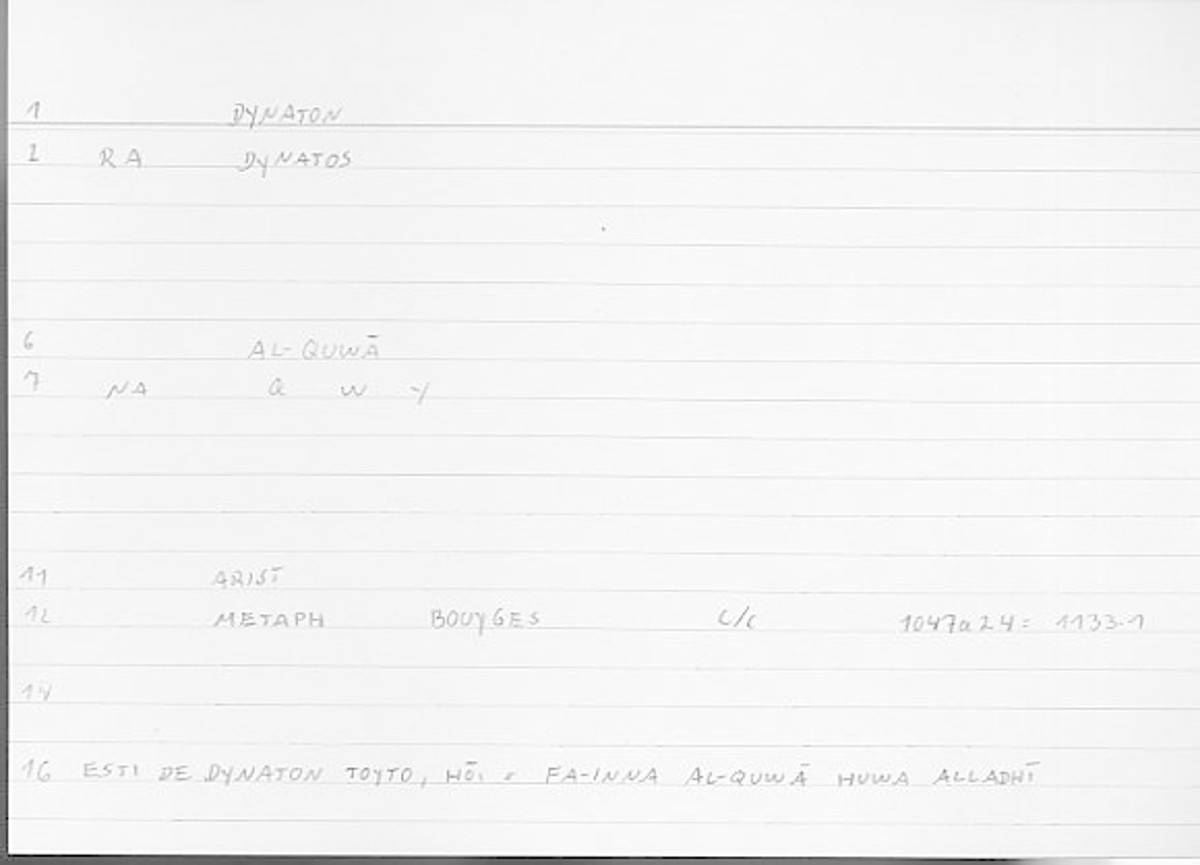 1 DYNATON
2 RA DYNATOS
6 AL-QUWĀ
7 NA Q W Y
11 ARIST
12 METAPH BOUYGES C/C 1047a24= 1133.1
14
16 ESTI DE DYNATON TOYTO, HŌI = FA-INNA AL-QUWĀ HUWA ALLADHĪ